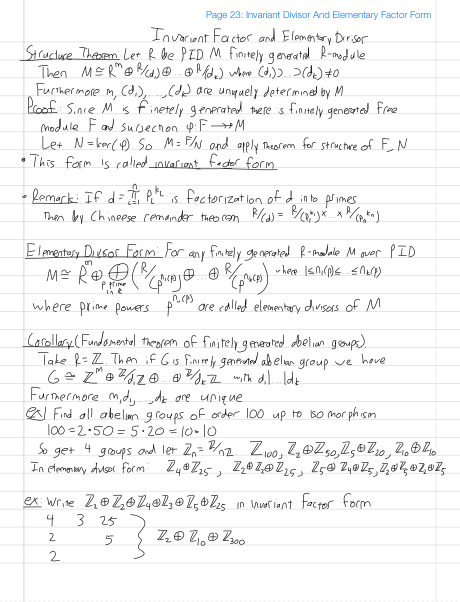 Page 23: Invariant Divisor And Elementary Factor Form
Invariant Factor and Elementary Divisor
Structure Theorem: Let R be PID M finitely generated R-module
Then M ≅ R^m ⊕ R/(d₁) ⊕ … ⊕ R/(dₖ) where (d₁) ⊃ … ⊃ (dₖ) ≠ 0
Furthermore m, (d₁), …, (dₖ) are uniquely determined by M
Proof: Since M is finetely generated there is finitely generated free
module F and surjection φ: F → M
Let N = ker(φ). So M = F/N and apply theorem for structure of F, N
• This form is called invariant factor form
• Remark: If d = ∏ᵢ₌₁ⁿ pᵢ^kᵢ is factorization of d into primes
Then by Chineese remainder theorem R/(d) = R/(p₁^k₁) × … × R/(pₙ^kₙ)
Elementary Divisor Form: For any finitely generated R-module M over PID
M ≅ R^m ⊕ ⊕ (R/(p^n₁(p)) ⊕ … ⊕ R/(p^nₖ(p))) where 1 ≤ n₁(p) ≤ … ≤ nₖ(p)
p prime in R
where prime powers p^nᵢ(p) are called elementary divisors of M
Corollary (Fundamental theorem of finitely generated abelian groups).
Take R = ℤ. Then if G is finitely generated abelian group we have
G ≅ ℤ^m ⊕ ℤ/d₁ℤ ⊕ … ⊕ ℤ/dₖℤ with d₁|…|dₖ
Furthermore m, d₁, …, dₖ are unique
ex/ Find all abelian groups of order 100 up to isomorphism
100 = 2·50 = 5·20 = 10·10
So get 4 groups and let ℤₙ = ℤ/nℤ. ℤ₁₀₀, ℤ₂⊕ℤ₅₀, ℤ₅⊕ℤ₂₀, ℤ₁₀⊕ℤ₁₀
In elementary divisor form: ℤ₄⊕ℤ₂₅, ℤ₂⊕ℤ₂⊕ℤ₂₅, ℤ₅⊕ℤ₄⊕ℤ₅, ℤ₂⊕ℤ₅⊕ℤ₂⊕ℤ₅
ex: Write ℤ₂⊕ℤ₂⊕ℤ₄⊕ℤ₃⊕ℤ₅⊕ℤ₂₅ in invariant factor form
4 3 25
2 5 } ℤ₂ ⊕ ℤ₁₀ ⊕ ℤ₃₀₀
2